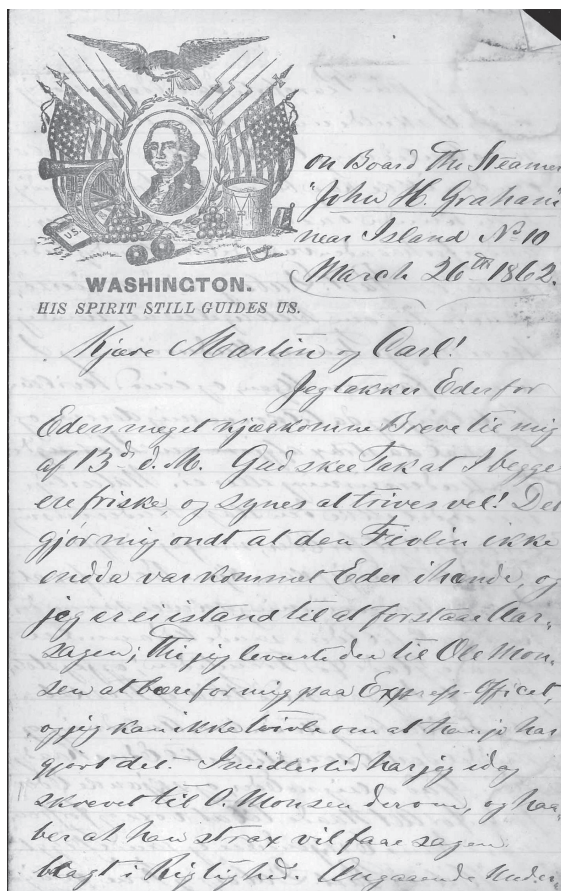 on Board The Steamer
"John H. Graham"
near Island No 10
March 26th 1862.
U.S.
WASHINGTON.
HIS SPIRIT STILL GUIDES US.
Kjære Martin og Carl!
Jeg takker Eder for
Eders meget kjærkomne Breve til mig
af 13d d. M. Gud skee Tak at I begge
ere friske, og synes at trives vel! Det
gjør mig ondt at den Fiolin ikke
endda var kommet Eder ihænde, og
jeg er ei istand til at forstaae Aar-
sagen; Thi jeg leverte den til Ole Mon-
sen at bære for mig paa Express-Officet,
og jeg kan ikke tvivle om at han jo har
gjort det. Imidlertid har jeg idag
skrevet til O. Monsen derom, og haa-
ber at han strax vil faae sagen
bragt i Rigtighed. Angaaende Under-